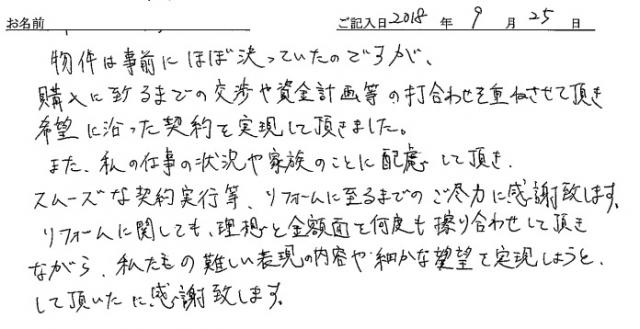 お名前 ご記入日 2018 年 9 月 25 日
物件は事前にほぼ決っていたのですが、
購入に致るまでの交渉や資金計画等の打合わせを重ねさせて頂き
希望に沿った契約を実現して頂きました。
また、私の仕事の状況や家族のことに配慮して頂き、
スムーズな契約実行等、リフォームに至るまでのご尽力に感謝致します。
リフォームに関しても、理想と金額面を何度も擦り合わせして頂き
ながら、私たちの難しい表現の内容や細かな要望を実現しようと、
して頂いたに感謝致します。